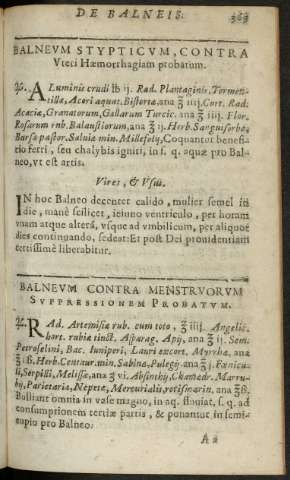 DE BALNEIS.
363
BALNEVM STYPTICVM, CONTRA
Vteri Hæmorrhagiam probatum.
℞. ALuminis crudi ℔ ij. Rad. Plantaginis, Tormen-
tilla, Acori aquat. Bistortæ, ana ℥ iiij. Cort. Rad:
Acaciæ, Granatorum, Gallarum Turcic. ana ℥ iiij. Flor.
Rosarum rub. Balaustiorum, ana ℥ ij. Herb. Sanguisorbæ,
Bursæ pastor. Saluiæ min. Millefolij, Coquantur benefi-
cio ferri, seu chalybis igniti, in s. q. aquæ pro Bal-
neo, vt est artis.
Vires, & Vsus.
IN hoc Balneo decenter calido, mulier semel in
die, manè scilicet, ieiuno ventriculo, per horam
vnam atque alterā, vsque ad vmbilicum, per aliquot
dies continuando, sedeat: Et post Dei prouidentiam
certissimè liberabitur.
BALNEVM CONTRA MENSTRVORVM
SVPPRESSIONEM PROBATVM.
℞. RAd. Artemisiæ rub. cum toto, ℥ iiij. Angelic.
hort. rubiæ tinct. Asparag. Apij, ana ℥ ij. Sem.
Petroselini, Bac. Iuniperi, Lauri excort. Myrrhæ, ana
℥ j. ß. Herb. Centaur. min. Sabinæ, Pulegij ana ℥ j. Fœnicu-
li, Serpilli, Melissæ, ana ʒ vi. Absinthij, Chamædr. Marru-
bij, Parietariæ, Nepetæ, Mercurialis, rorismarin. ana ℥ ß.
Bulliant omnia in vase magno, in aq. fluuiat. s. q. ad
consumptionem tertiæ partis, & ponantur in semi-
cupio pro Balneo.
A a